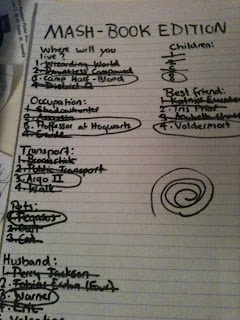 MASH-BOOK EDITION
Where will you live?
1. Wizarding World
2. Dauntless Compound
3. Camp Half-Blood
4. District 12
Children:
Occupation:
1. Shadowhunter
2. Assassin
3. Professor at Hogwarts
4. Guide
Best Friend:
1. Katniss
2. Iris
3. Annabeth
4. Voldermort
Transport:
1. Broomstick
2. Public Transport
3. Argo II
4. Walk
Pets:
1. Pegasus
2. Owl
3. Cat
Husband:
1. Percy Jackson
2. Tobias Eaton (Four)
3. Warner
4. Eric